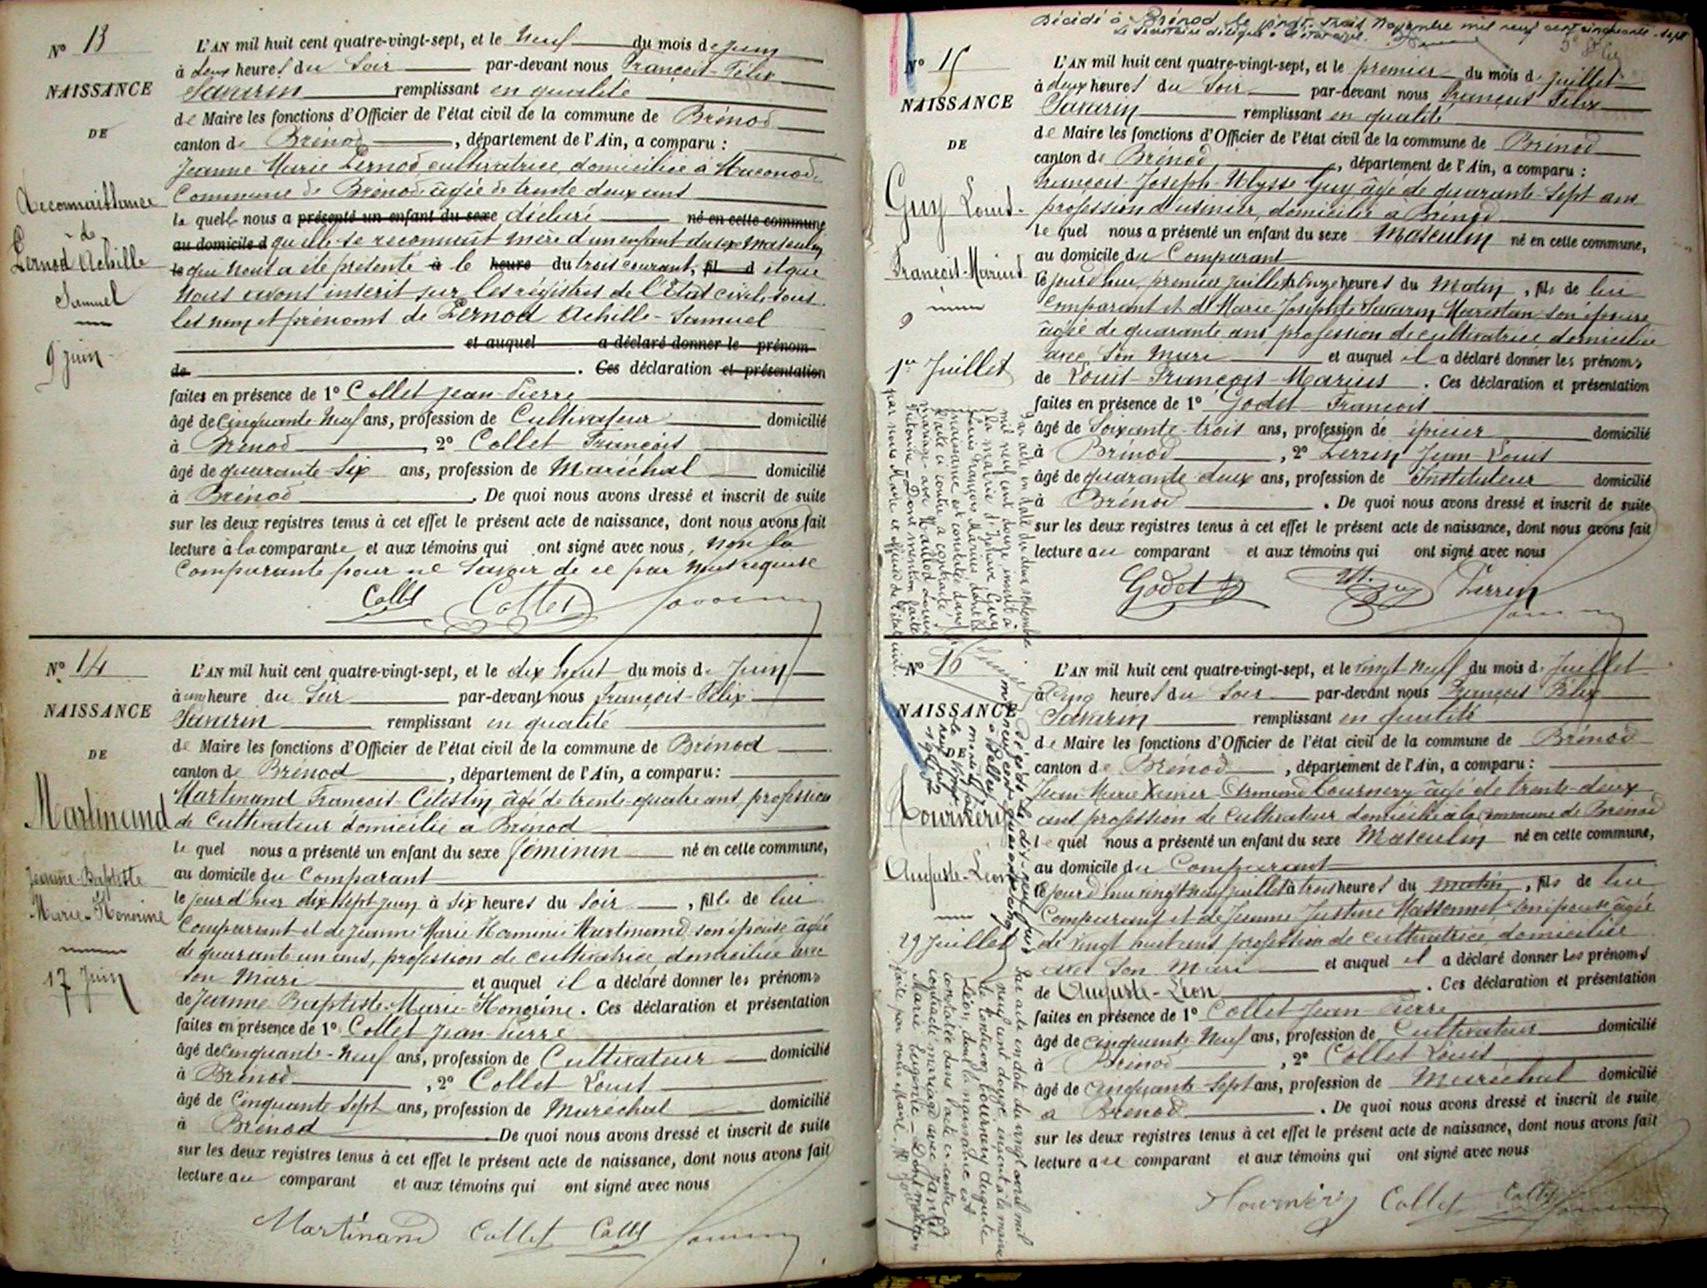 N° 13
NAISSANCE
DE
Reconnaissance
de
Pernod Achille
Samuel
9 juin
L'AN mil huit cent quatre-vingt-sept, et le neuf du mois de juin
à deux heures du Soir par-devant nous François-Félix
Savarin remplissant en qualité
de Maire les fonctions d'Officier de l'état civil de la commune de Brénod
canton de Brénod, département de l'Ain, a comparu :
Jeanne Marie Pernod cultivatrice domiciliée à
Commune de Brénod âgée de trente deux ans
la quelle nous a présenté un enfant du sexe déclaré né en cette commune
au domicile d qu'elle se reconnait mère d'un enfant du sexe Masculin
le qui nous a été présenté à le heure du trois courant, fil d et que
Nous avons inscrit sur les registres de l'Etat civil, sous
les nom et prénoms de Pernod Achille-Samuel
et auquel a déclaré donner le prénom
de . Ces déclaration et présentation
faites en présence de 1° Collet jean-Pierre
âgé de cinquante Neuf ans, profession de Cultivateur domicilié
à Brénod, 2° Collet François
âgé de quarante-six ans, profession de Maréchal domicilié
à Brénod. De quoi nous avons dressé et inscrit de suite
sur les deux registres tenus à cet effet le présent acte de naissance, dont nous avons fait
lecture à la comparante et aux témoins qui ont signé avec nous, non la
Comparante pour ne Savoir de ce par nous requise
Collet Collet Savarin
N° 14
NAISSANCE
DE
Martinand
Jeanne-Baptiste
Marie-Honorine
17 Juin
L'AN mil huit cent quatre-vingt-sept, et le dix huit du mois de Juin
à une heure du Soir par-devant nous François-Félix
Savarin remplissant en qualité
de Maire les fonctions d'Officier de l'état civil de la commune de Brénod
canton de Brénod, département de l'Ain, a comparu :
Martinand François-Célestin âgé de trente-quatre ans profession
de Cultivateur domicilié a Brénod
le quel nous a présenté un enfant du sexe féminin né en cette commune,
au domicile du Comparant
le jour d'hier dix sept juin à six heures du Soir, fille de lui
Comparant et de Jeanne Marie Herminie Martinand son épouse âgée
de quarante un ans, profession de cultivatrice domiciliée avec
son Mari et auquel il a déclaré donner les prénoms
de Jeanne Baptiste-Marie Honorine. Ces déclaration et présentation
faites en présence de 1° Collet Jean-Pierre
âgé de cinquante-Neuf ans, profession de Cultivateur domicilié
à Brénod, 2° Collet Louis
âgé de Cinquante Sept ans, profession de Maréchal domicilié
à Brénod. De quoi nous avons dressé et inscrit de suite
sur les deux registres tenus à cet effet le présent acte de naissance, dont nous avons fait
lecture au comparant et aux témoins qui ont signé avec nous
Martinand Collet Collet Savarin
Décédé à Brénod le vingt-trois Novembre mil neuf cent cinquante-sept
Le Secrétaire délégué à l'état civil.
N° 15
NAISSANCE
DE
Guy Louis-
François-Marius
1er Juillet
L'AN mil huit cent quatre-vingt-sept, et le premier du mois de Juillet
à deux heures du Soir par-devant nous François Félix
Savarin remplissant en qualité
de Maire les fonctions d'Officier de l'état civil de la commune de Brénod
canton de Brénod, département de l'Ain, a comparu :
François Joseph-Ulysse Guy âgé de quarante-sept ans
profession d'usinier, domicilié à Brénod
le quel nous a présenté un enfant du sexe Masculin né en cette commune,
au domicile du Comparant
le jourd'hui premier juillet à onze heures du Matin, fils de lui
Comparant et de Marie Josephte Savarin Marestan son épouse
âgée de quarante ans profession de cultivatrice domiciliée
avec Son Mari et auquel il a déclaré donner les prénoms
de Louis-François-Marius. Ces déclaration et présentation
faites en présence de 1° Godet François
âgé de Soixante-trois ans, profession de épicier domicilié
à Brénod, 2° Perrin Jean-Louis
âgé de quarante deux ans, profession de Instituteur domicilié
à Brénod. De quoi nous avons dressé et inscrit de suite
sur les deux registres tenus à cet effet le présent acte de naissance, dont nous avons fait
lecture au comparant et aux témoins qui ont signé avec nous
Godet Guy Perrin
Savarin
Par acte en date du deux septembre
mil neuf cent douze inscrit à
la mairie d' Guy
Louis François Marius dont la
naissance est constatée dans
l'acte ci contre a contracté
mariage avec
Dont mention faite
par nous Maire et officier de l'état civil.
N° 16
NAISSANCE
DE
Tournéry
Auguste-Léon
29 Juillet
L'AN mil huit cent quatre-vingt-sept, et le vingt Neuf du mois de Juillet
à Cinq heures du Soir par-devant nous François Félix
Savarin remplissant en qualité
de Maire les fonctions d'Officier de l'état civil de la commune de Brénod
canton de Brénod, département de l'Ain, a comparu :
Jean Marie Xavier Armand Tournéry âgé de trente-deux
ans profession de Cultivateur domicilié à la commune de Brénod
le quel nous a présenté un enfant du sexe Masculin né en cette commune,
au domicile du Comparant
le jourd'hui vingt neuf juillet à trois heures du matin, fils de lui
Comparant et de Jeanne Justine Massonnet son épouse âgée
de vingt huit ans profession de cultivatrice domiciliée
avec Son Mari et auquel il a déclaré donner les prénoms
de Auguste-Léon. Ces déclaration et présentation
faites en présence de 1° Collet Jean Pierre
âgé de cinquante Neuf ans, profession de Cultivateur domicilié
à Brénod, 2° Collet Louis
âgé de cinquante-Sept ans, profession de Maréchal domicilié
à Brénod. De quoi nous avons dressé et inscrit de suite
sur les deux registres tenus à cet effet le présent acte de naissance, dont nous avons fait
lecture au comparant et aux témoins qui ont signé avec nous
Tournéry Collet Collet Savarin
Par acte en date du vingt avril mil
neuf cent douze, inscrit à la mairie
Tournéry Auguste
Léon, dont la naissance est
constatée dans l'acte ci-contre a
contracté mariage avec
Marie Eugénie - Dont mention
faite par nous Maire.